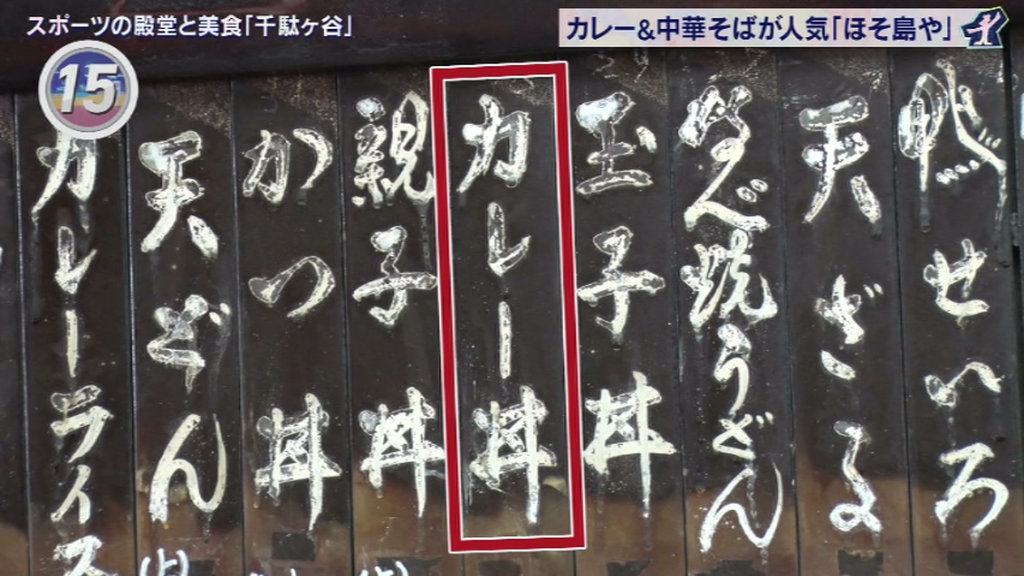 スポーツの殿堂と美食「千駄ヶ谷」
カレー&中華そばが人気「ほそ島や」
15
鴨せいろ
天ざる
なべ焼うどん
玉子丼
カレー丼
親子丼
かつ丼
天どん
カレーライス